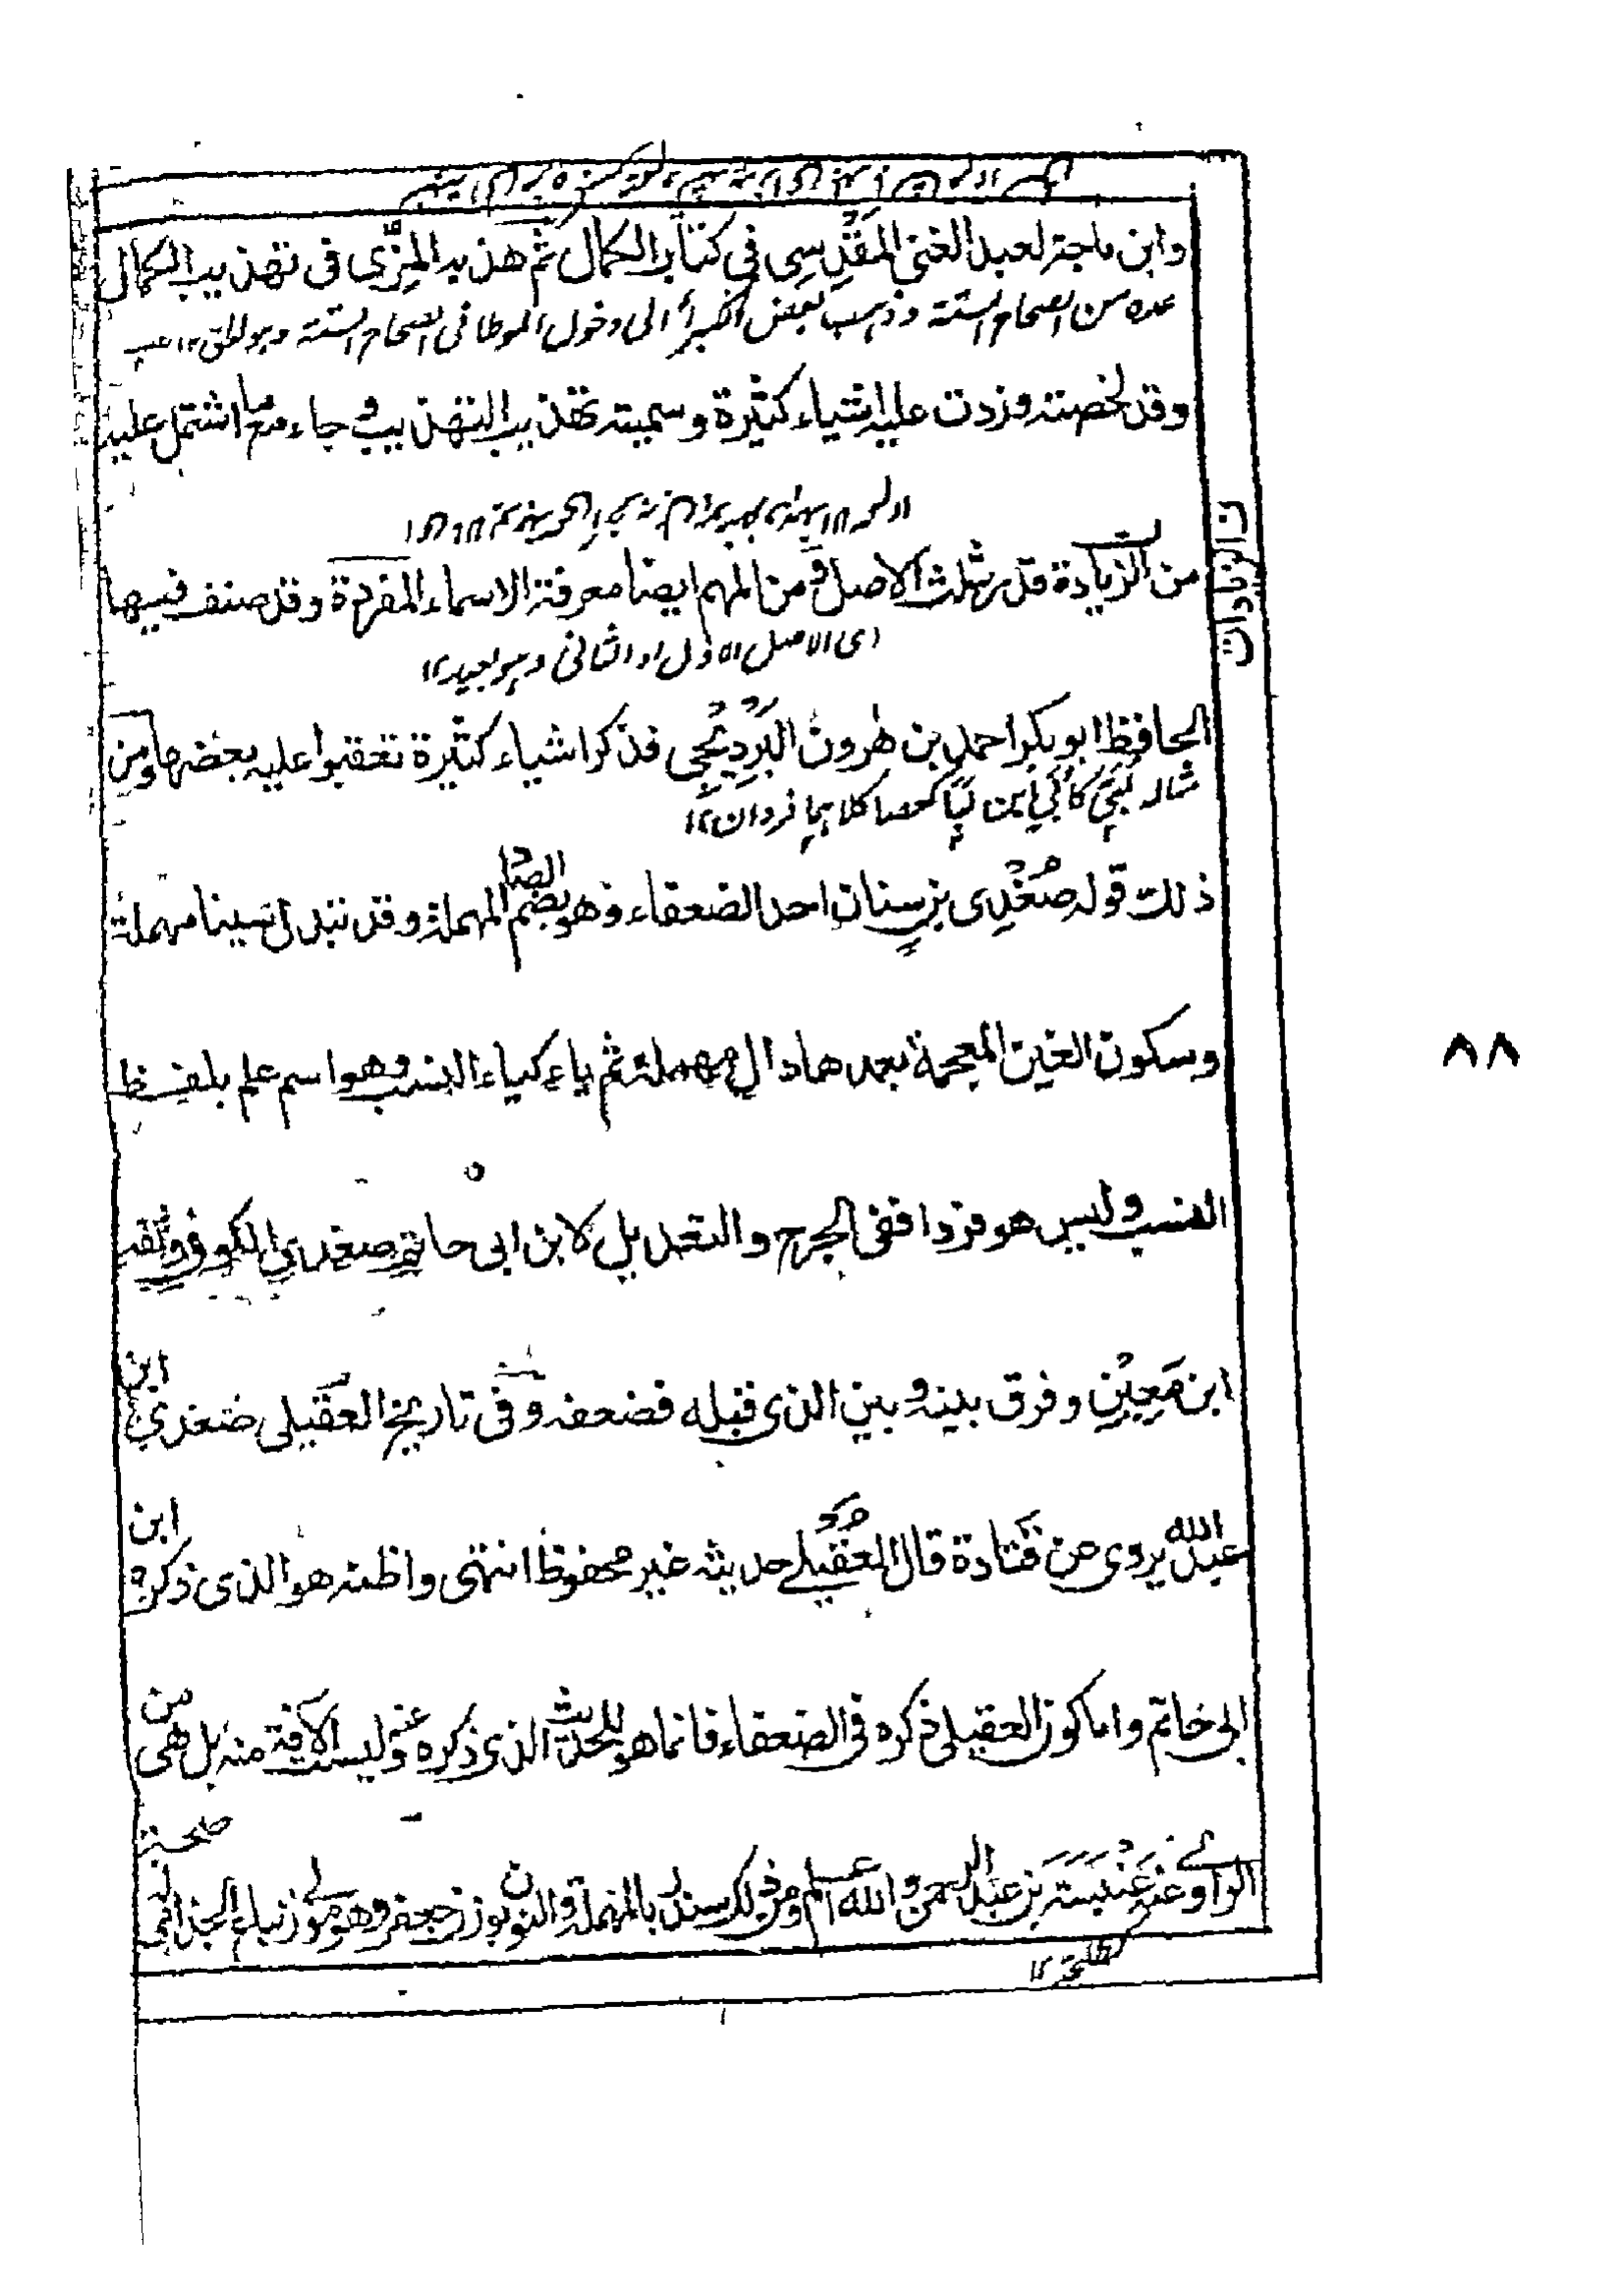 وابن ماجة لعبد الغنى المَقْدِسِى فى كتاب الكمال ثم هذبه المِزّى فى تهذيب الكمال
عده من الصحاح الستة وذهب بعض الى دخول الموطا فى الصحاح الستة وهو الحق ١٢
وقد لخصته وزدت عليه اشياء كثيرة وسميته تهذيب التهذيب وجاء مع ما اشتمل عليه
من الزيادة قدر ثلث الاصل ومن المهم ايضا معرفة الاسماء المفردة وقد صنف فيها
اى الاصل الاول او الثانى وهو بعيد ١٢
الزيادات
الحافظ ابو بكر احمد بن هٰرون البَرْدِيْجِى فذكر اشياء كثيرة تعقبوا عليه بعضها ومن
مثاله لُبَىّ كأُبَىّ ابن لَبًا كعصا كلاهما فردان ١٢
ذلك قوله صُغْدِى بن سنان احد الضعفاء وهو بضم الصاد المهملة وقد تبدل سينا مهملة
وسكون الغين المعجمة بعدها دال مهملة ثم ياء كياء النسب وهو اسم علم بلفظ
٨٨
النسب وليس هو فردا ففى الجرح والتعديل لابن ابى حاتم صغدى الكوفى وثقه
ابن مَعِيْنٍ وفرق بينه وبين الذى قبله فضعفه وفى تاريخ العقيلى صغدى ابن
عبد الله يروى عن قتادة قال العُقَيْلى حديثه غير محفوظ انتهى واظنه هو الذى ذكره ابن
ابى حاتم واما كون العقيلى ذكره فى الضعفاء فانما هو للحديث الذى ذكره عنه وليست الآفة منه بل هى من
الراوى عنه عَنْبَسَة بن عبد الرحمن والله اعلم ومن ذلك سندر بالمهملة والنون بوزن جعفر وهو مولى زنباع الجذامى له صحبة